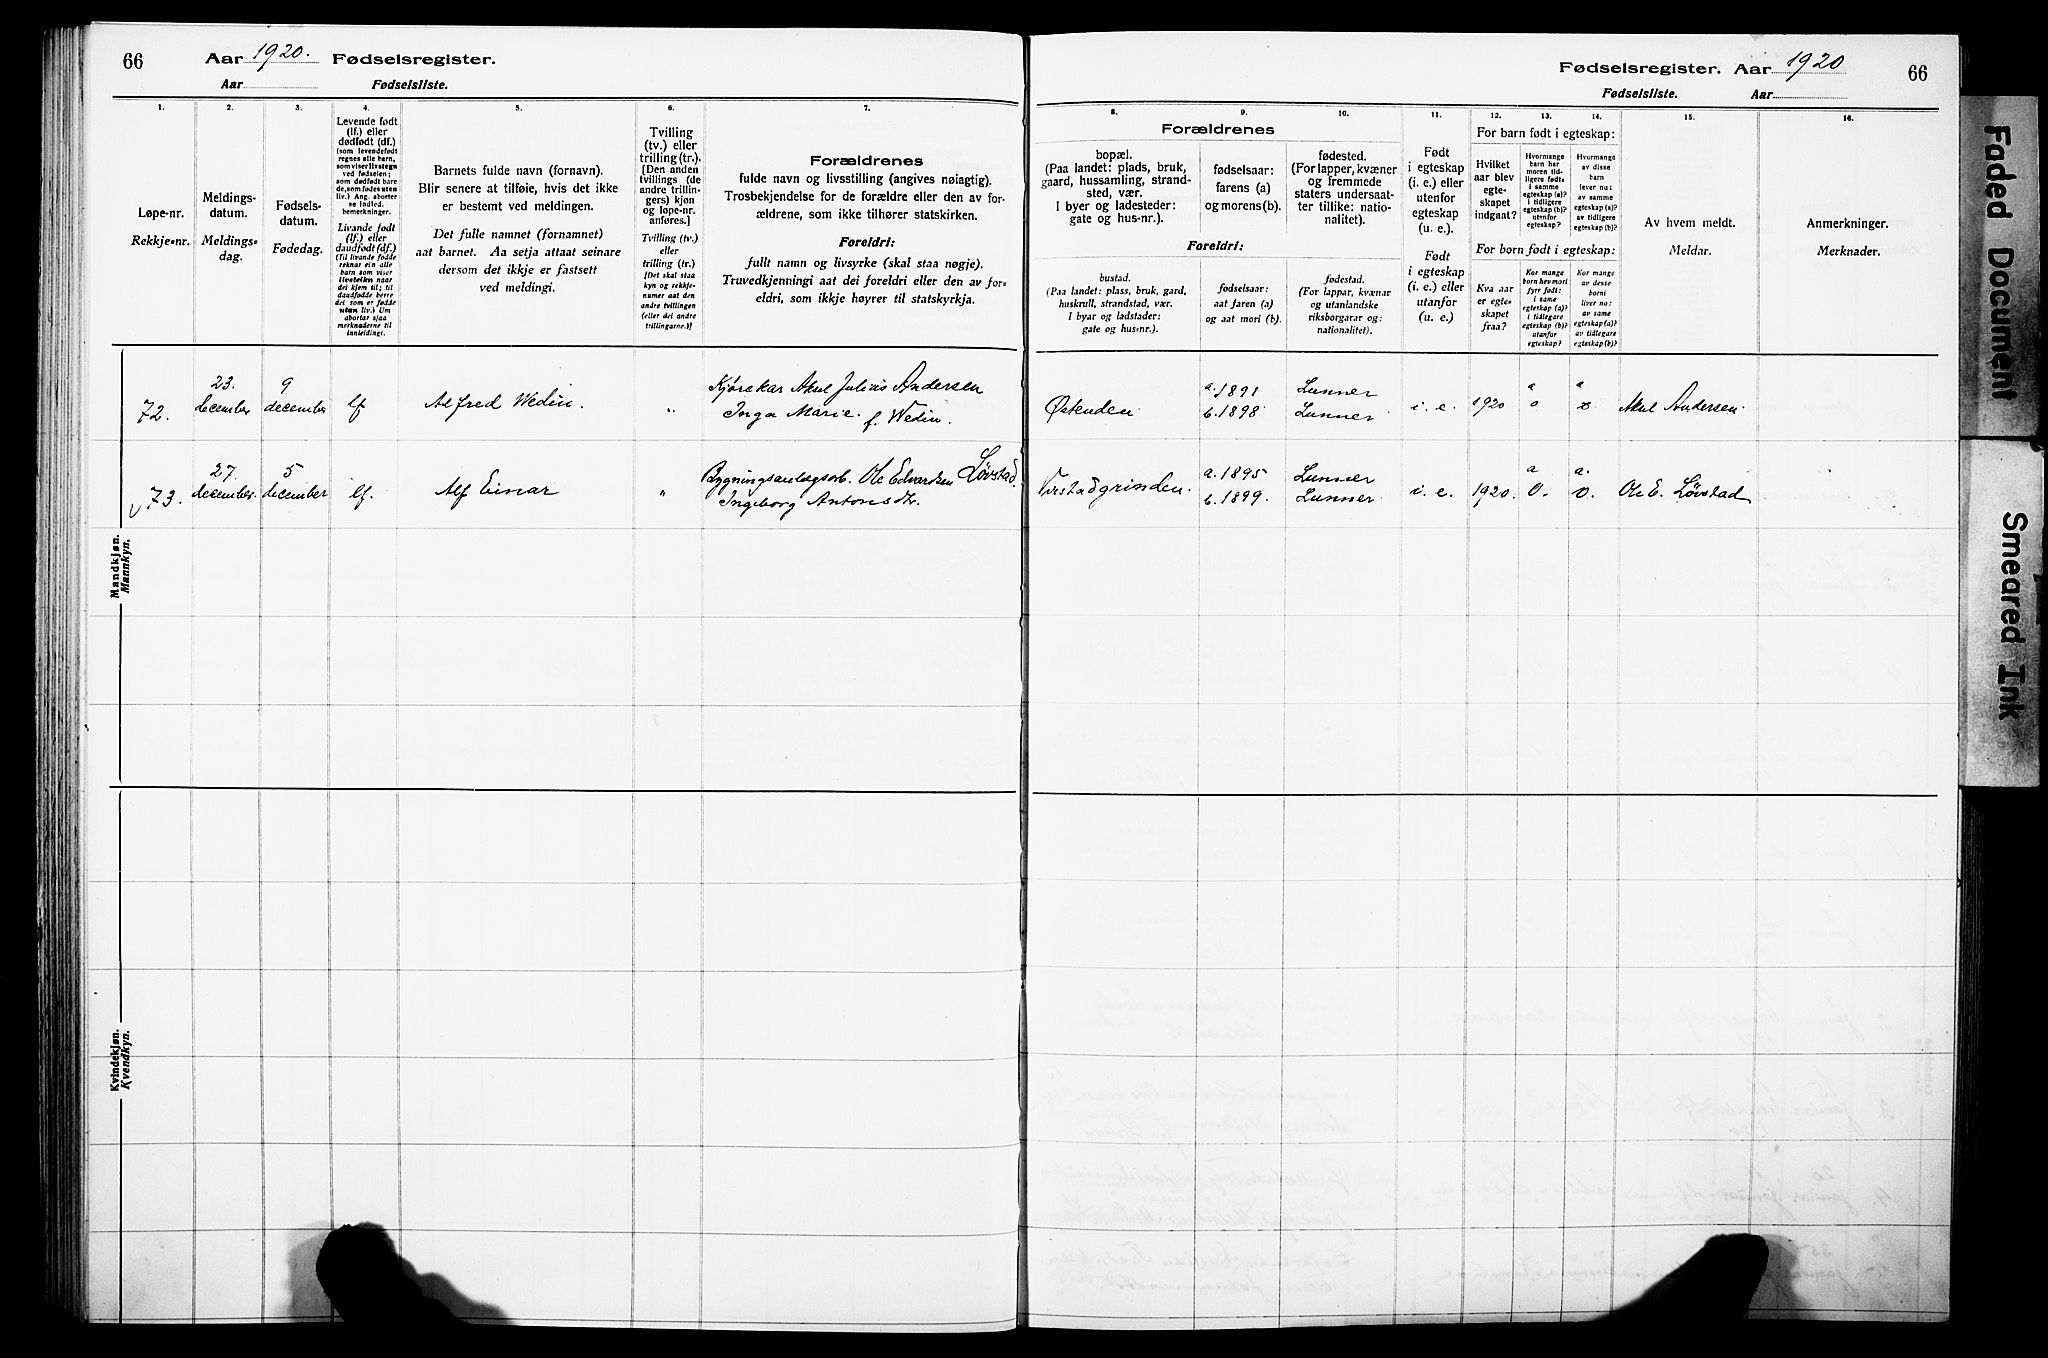 66
Aar 1920. Fødselsregister.
Aar Fødselsliste.
1.
2.
3.
4.
5.
6.
7.
Løpe-nr.
Rekkje=nr.
Meldings-
datum.
Meldings=
dag.
Fødsels-
datum.
Fødedag.
Levende født
(lf.) eller
dødfødt (df.)
(som levendefødt
regnes alle barn,
som viser livstegn
ved fødselen;
som dødfødt bare
de, som fødes uten
liv.) Ang. aborter
se indled.
bemerkninger.
Livande født
(lf.) eller
daudfødt (df.)
(Til livande fødde
reknar ein alle
barn som viser
livsteikn naar
dei kjem til; til
daudfødde berre
dei som er fødde
utan liv.) Um
abortar sjaa
merknaderne til
innleidingi.
Barnets fulde navn (fornavn).
Blir senere at tilføie, hvis det ikke
er bestemt ved meldingen.
Det fulle namnet (fornamnet)
aat barnet. Aa setja attaat seinare
dersom det ikkje er fastsett
ved meldingi.
Tvilling
(tv.) eller
trilling (tr.).
[Den anden
tvillings (de
andre trillin-
gers) kjøn
og løpe-nr.
anføres.]
Tvilling (tv.)
eller
trilling (tr.)
[Det skal staa
kyn og rekkje-
numer aat den
andre tvillingen
(eller dei andre
trillingarne.)]
Forældrenes
fulde navn og livsstilling (angives nøiagtig).
Trosbekjendelse for de forældre eller den av for-
ældrene, som ikke tilhører statskirken.
Foreldri:
fullt namn og livsyrke (skal staa nøgje).
Truvedkjenningi aat dei foreldri eller den av for=
eldri, som ikkje høyrer til statskyrkja.
Mandkjøn.
Mannkyn.
72.
23.
december
9
december
lf
Alfred Wedin.
"
Kjørekar Aksel Julius Andersen
Inga Marie f. Wedin.
73.
27.
december.
5
december
lf.
Alf Einar
"
Bygningsanlægsarb. Ole Edvardsen Løvstad.
Ingeborg Antonsdtr.
Kvindekjøn.
Kvendkyn.
Fødselsregister. Aar 1920
66
Fødselsliste. Aar
8.
9.
10.
11.
12.
13.
14.
15.
16.
Forældrenes
bopæl.
(Paa landet: plads, bruk,
gaard, hussamling, strand-
sted, vær.
I byer og ladesteder:
gate og hus-nr.).
fødselsaar:
farens (a)
og morens (b).
fødested.
(For lapper, kvæner
og fremmede
staters undersaat-
ter tillike: natio-
nalitet).
Foreldri:
bustad.
(Paa landet: plass, bruk, gard,
huskrull, strandstad, vær.
I byar og ladstader:
gate og hus=nr.).
fødselsaar:
aat faren (a)
og aat mori (b).
fødestad.
(For lappar, kvænar
og utanlandske
riksborgarar og:
nationalitet).
Født
i egteskap
(i. e.) eller
utenfor
egteskap
(u. e.).
Født
i egteskap
(i. e.) eller
utanfor
(u. e.)
For barn født i egteskap:
Hvilket
aar blev
egte-
skapet
indgaat?
Hvormange
barn har
moren tid-
ligere født:
i samme
egteskap (a)?
i tidligere
egteskap (b)?
utenfor
egteskap?
Hvormange
av disse
barn
lever nu:
av samme
egteskap (a)?
av tidligere
egteskap (b)?
For born født i egteskap:
Kva aar
er egte=
skapet
fraa?
Kor mange
born hev mori
fyrr født:
i same
egteskap (a)?
i tidlegare
egteskap (b)?
utanfor
egteskap?
Kor mange
av desse
borni
liver no:
av same
egteskap (a)?
av tidlegare
egteskap (b)?
Av hvem meldt.
Meldar.
Anmerkninger.
Merknader.
Østenden
a. 1891
b. 1898
Lunner
Lunner
i. e.
1920
a
o
a
Aksel Andersen.
a. 1895
b. 1899.
Lunner
Lunner
i. e.
1920.
a
0.
a.
0.
Ole E. Løvstad
Faded Document
Smeared Ink